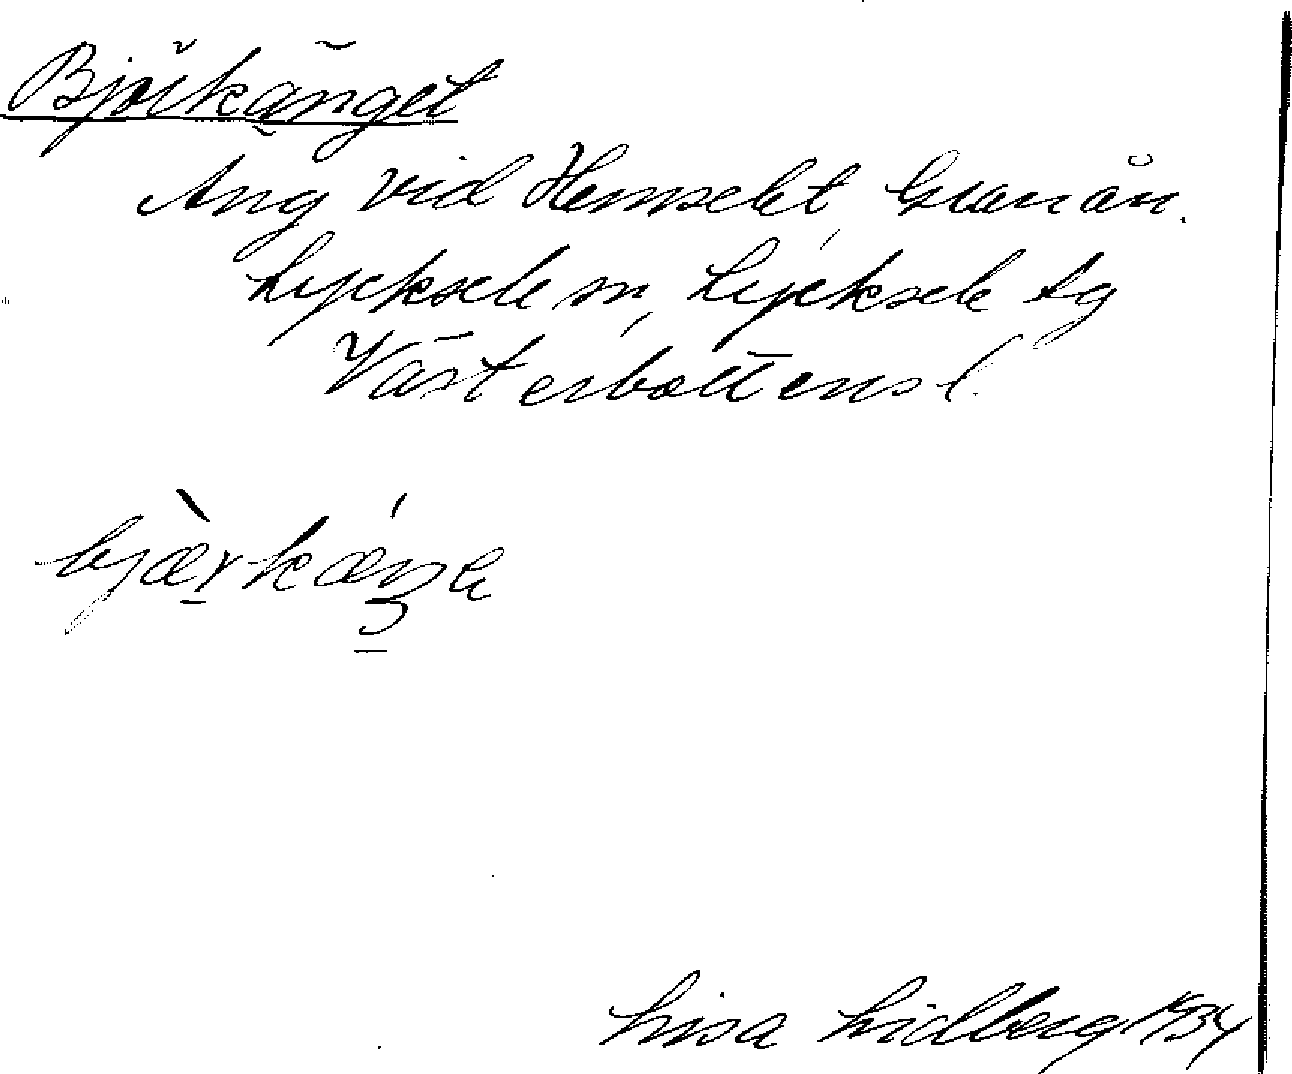 Björkänget
Äng vid Hemselet, Granån.
Lycksele sn, Lycksele tg
Västerbottens l.
bjær̲kæŋe
Lisa Lidberg 1934